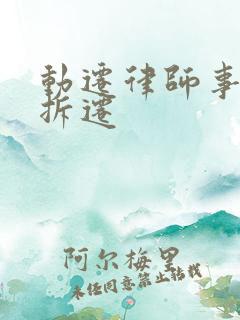 動遷律師事
拆遷
阿尔梅里
未经同意禁止转载